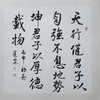 天行健君子以
自強不息地勢
坤君子以厚德
載物